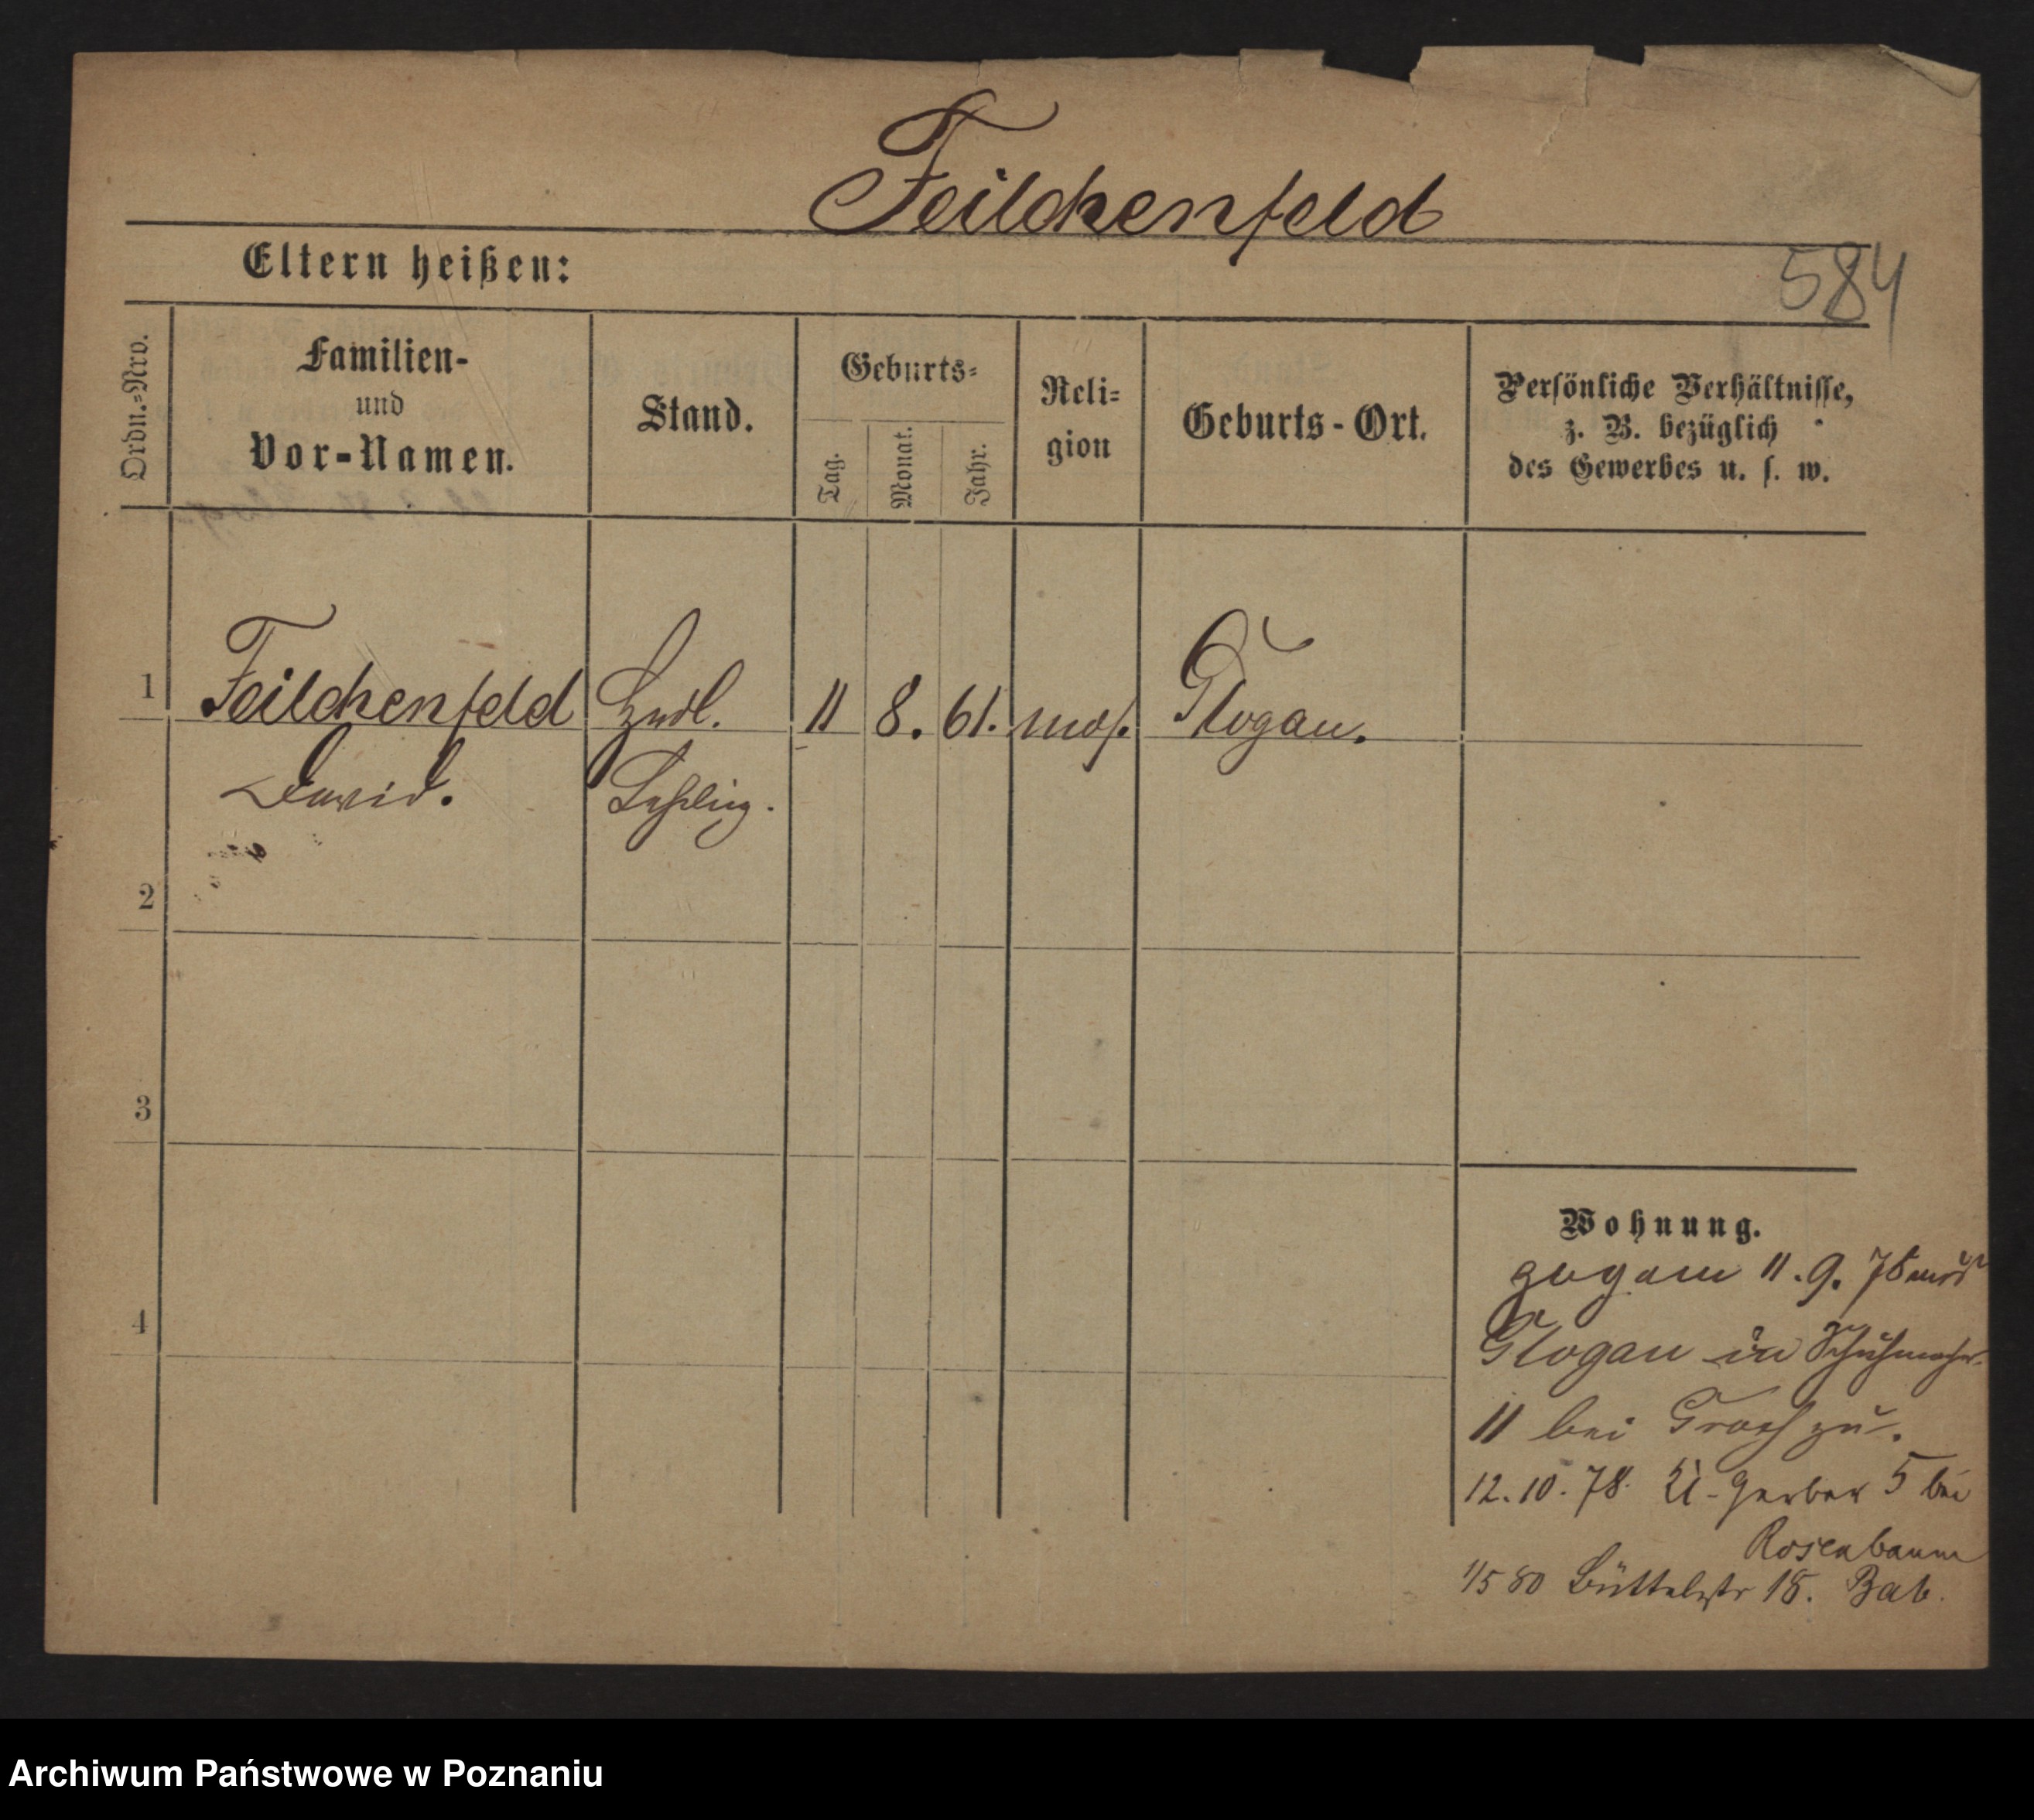 Feilchenfeld
Eltern heißen:
584
Ordn.-Nro.
Familien-
und
Vor-Namen.
Stand.
Geburts-
Tag.
Monat.
Jahr.
Reli-
gion
Geburts-Ort.
Persönliche Verhältnisse,
z. B. bezüglich
des Gewerbes u. s. w.
1
Feilchenfeld
Hndl.
11
8.
61.
mos.
Glogau.
David.
Lehrling.
2
3
4
Wohnung.
11.9.78
Glogau in Schuhmacher-
11 bei zu.
12.10.78. Kl-Gerber 5 bei
Rosenbaum
1/5 80 Büttelstr 18. Bab.
Archiwum Państwowe w Poznaniu